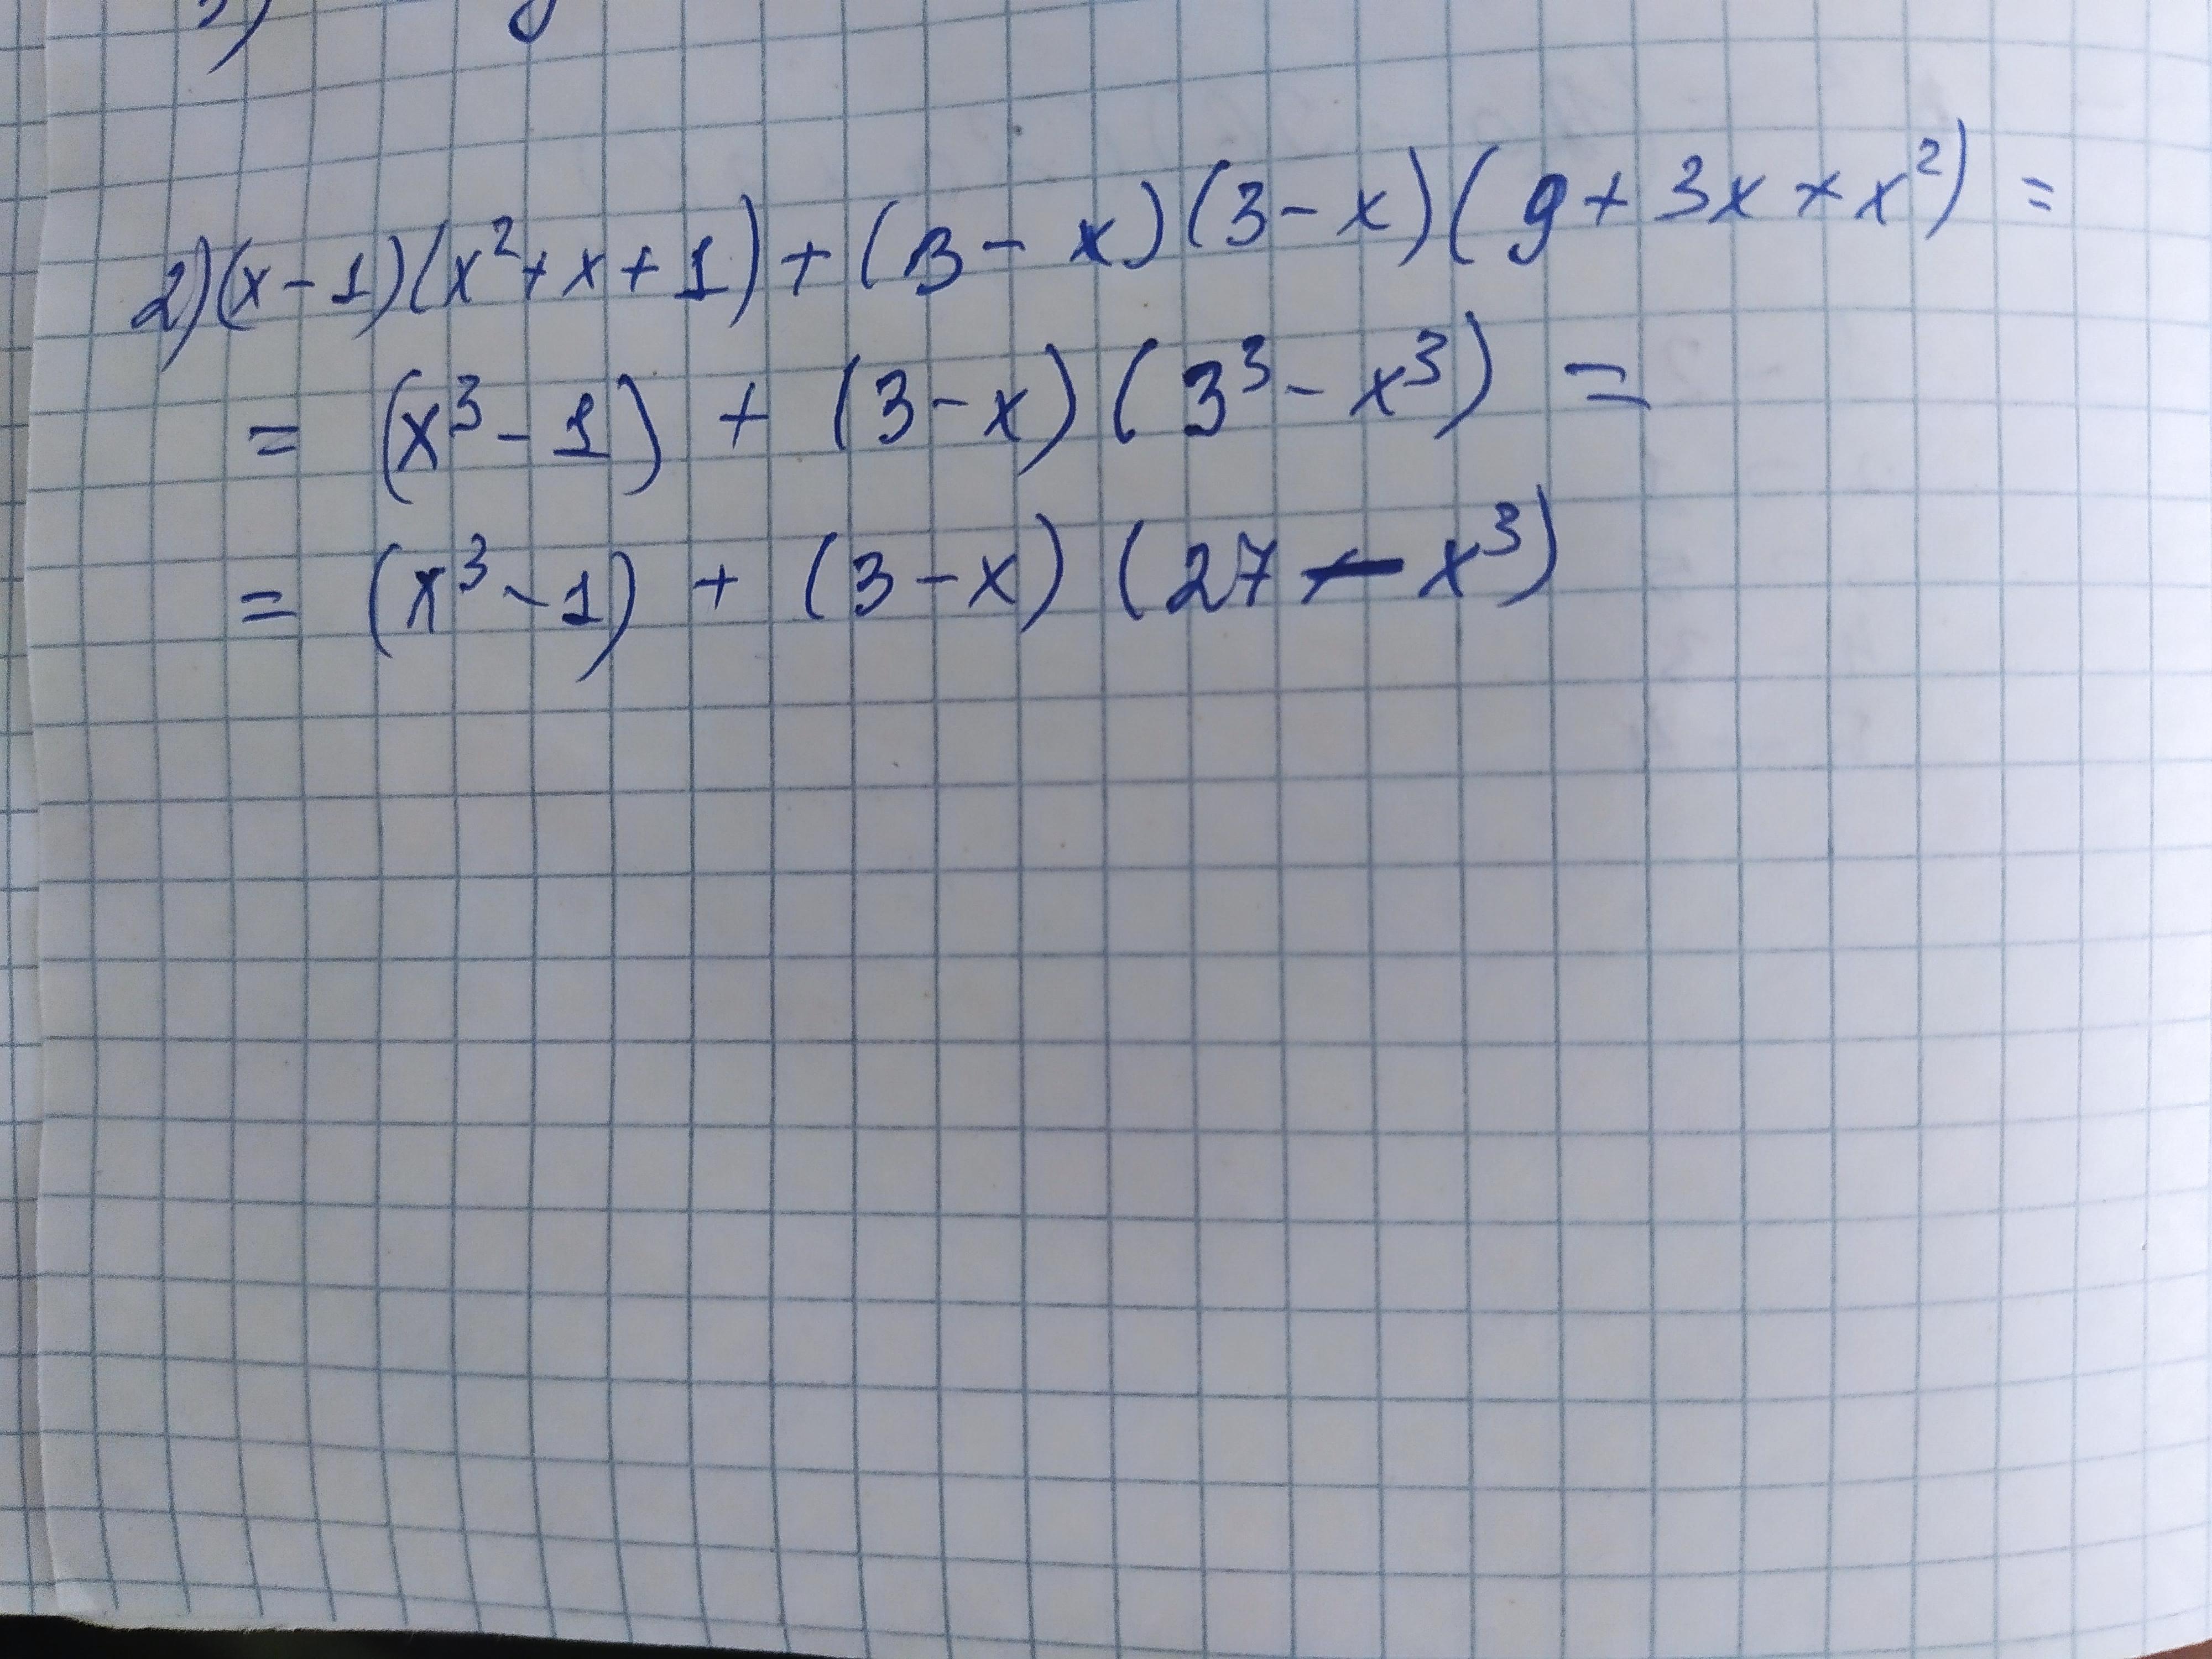 2) (x - 1)(x² + x + 1) + (3 - x)(3 - x)(9 + 3x + x²) =
= (x³ - 1) + (3 - x)(3³ - x³) =
= (x³ - 1) + (3 - x)(27 - x³)